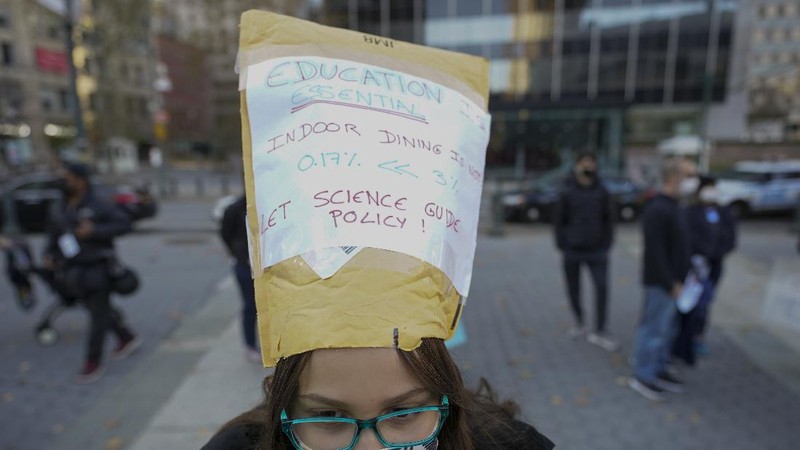 EDUCATION IS
ESSENTIAL
INDOOR DINING IS NOT
0.17% << 3%
LET SCIENCE GUIDE
POLICY!